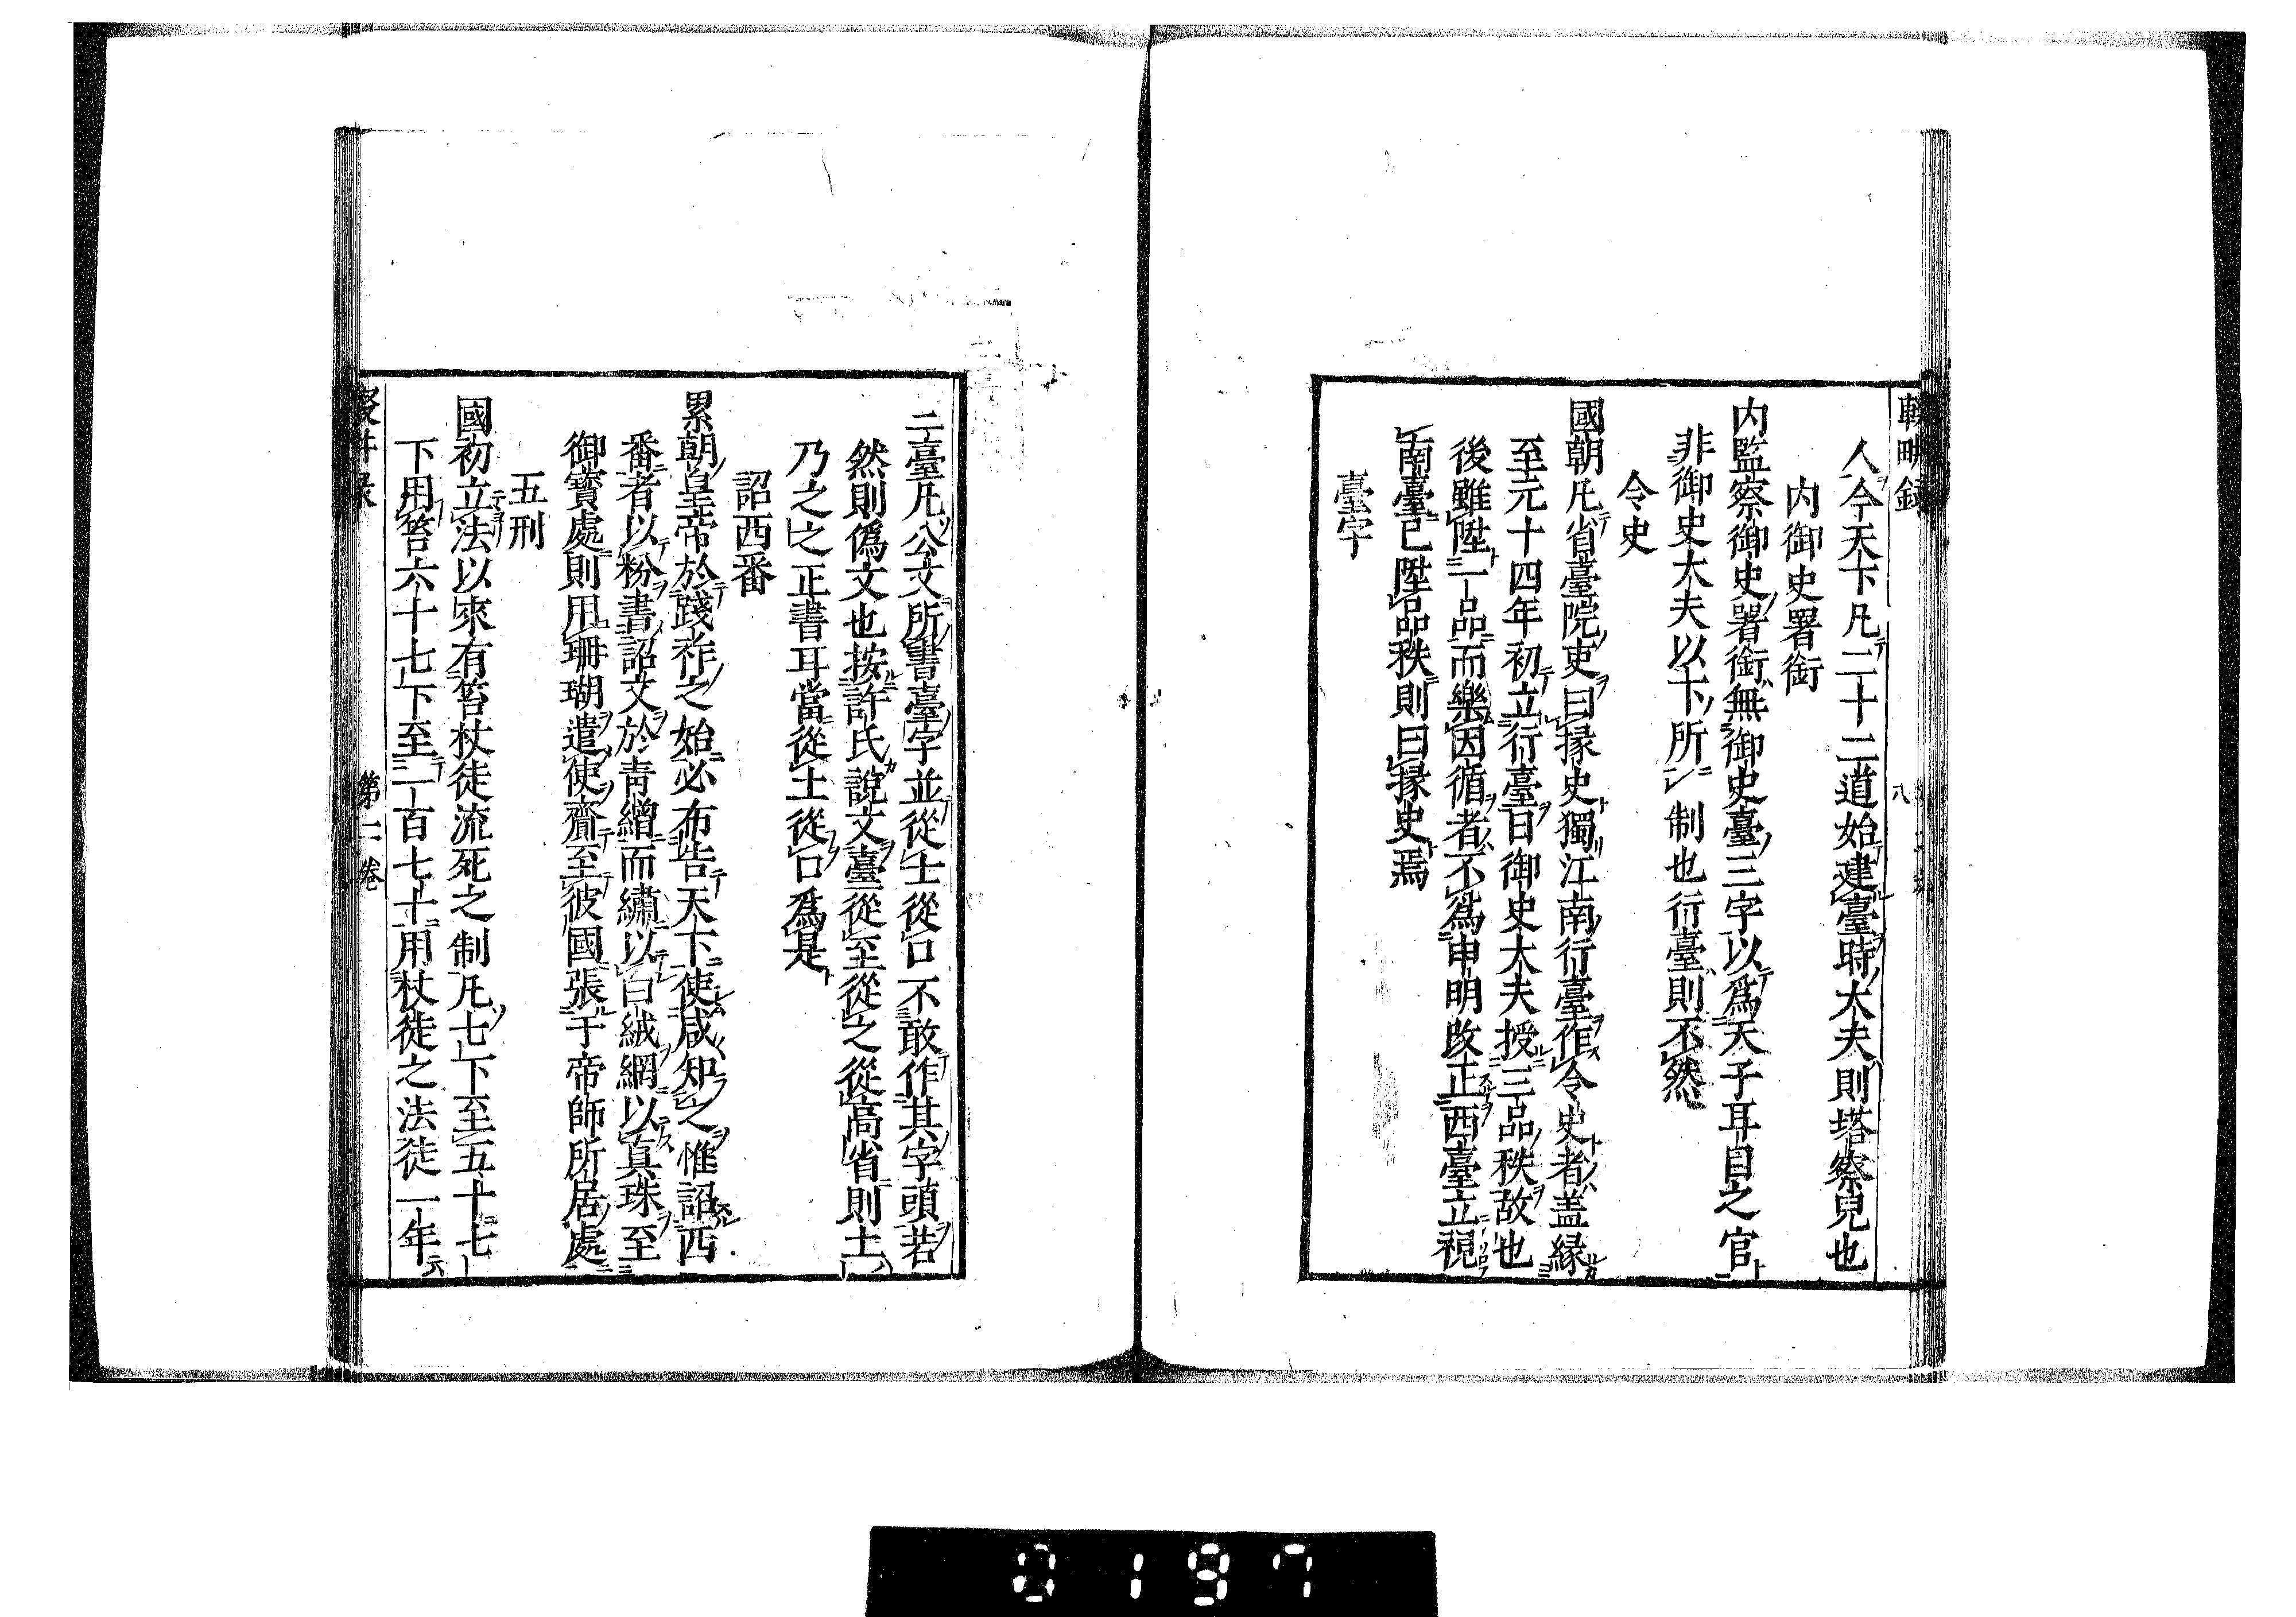 人今天下凡二十二道始建臺時大夫則塔察兒也
内御史署銜
内監察御史署銜無御史臺三字以爲天子耳目之官
非御史大夫以下所制也行臺則不然
令史
國朝凡省臺院吏曰掾史獨江南行臺作令史者盖縁
至元十四年初立行臺日御史大夫授三品秩故也
後雖陞一品而樂因循者不爲申明改正西臺立視
南臺已陞品秩則曰掾史焉
臺字
二臺凡公文所書臺字並從士從口不敢作其字頭若
然則僞文也按許氏說文臺從至從之從高省則土
乃之之正書耳當從土從口爲是
詔西番
累朝皇帝於踐祚之始必布告天下使咸知之惟詔西
番者以粉書詔文於青繒而繡以白絨網以真珠至
御寳處則用珊瑚遣使齎至彼國張于帝師所居處
五刑
國初立法以來有笞杖徒流死之制凡七下至五十七
下用笞六十七下至一百七十用杖徒之法徒一年
第二卷